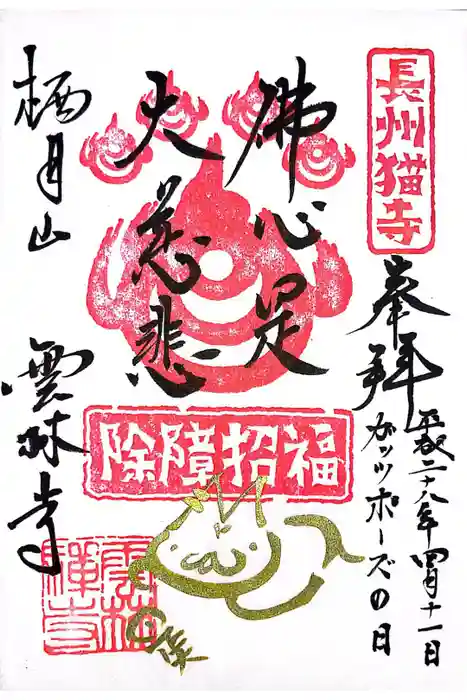 長州猫寺
奉拝
平成二十八年四月十一日
ガッツポーズの日
佛心是
大慈悲
福招障除
栖月山
雲林寺
雲林禅寺